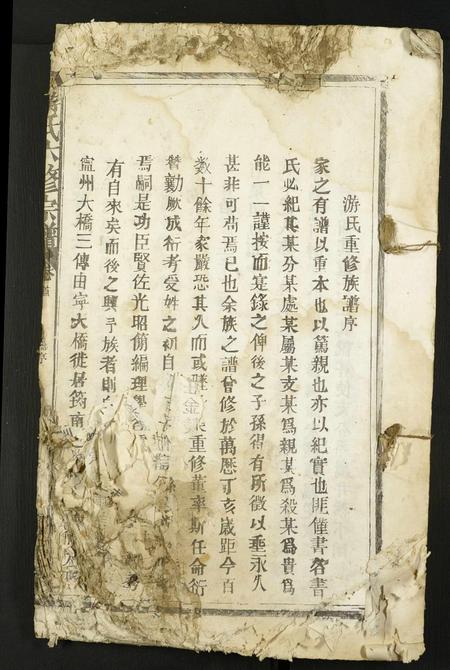 游氏重修族譜序
家之有譜以重本也以篤親也亦以紀實也匪僅書名書
氏必紀其某分某處某屬某支某為親某為殺某為貴為
能一一謹按而寔錄之俾後之子孫得有所徵以垂永久
甚非可苟焉已也余族之譜曾修於萬歷丁亥歲距今百
數十餘年家嚴恐其久而或 重修董率斯任命衍
贊勷厥成衍考受姓之初自
焉嗣是功臣賢佐光昭簡編理學
有自來矣而後之興吾族者則
寧州大橋三傳由寧大橋徙居筠南
氏六修宗譜